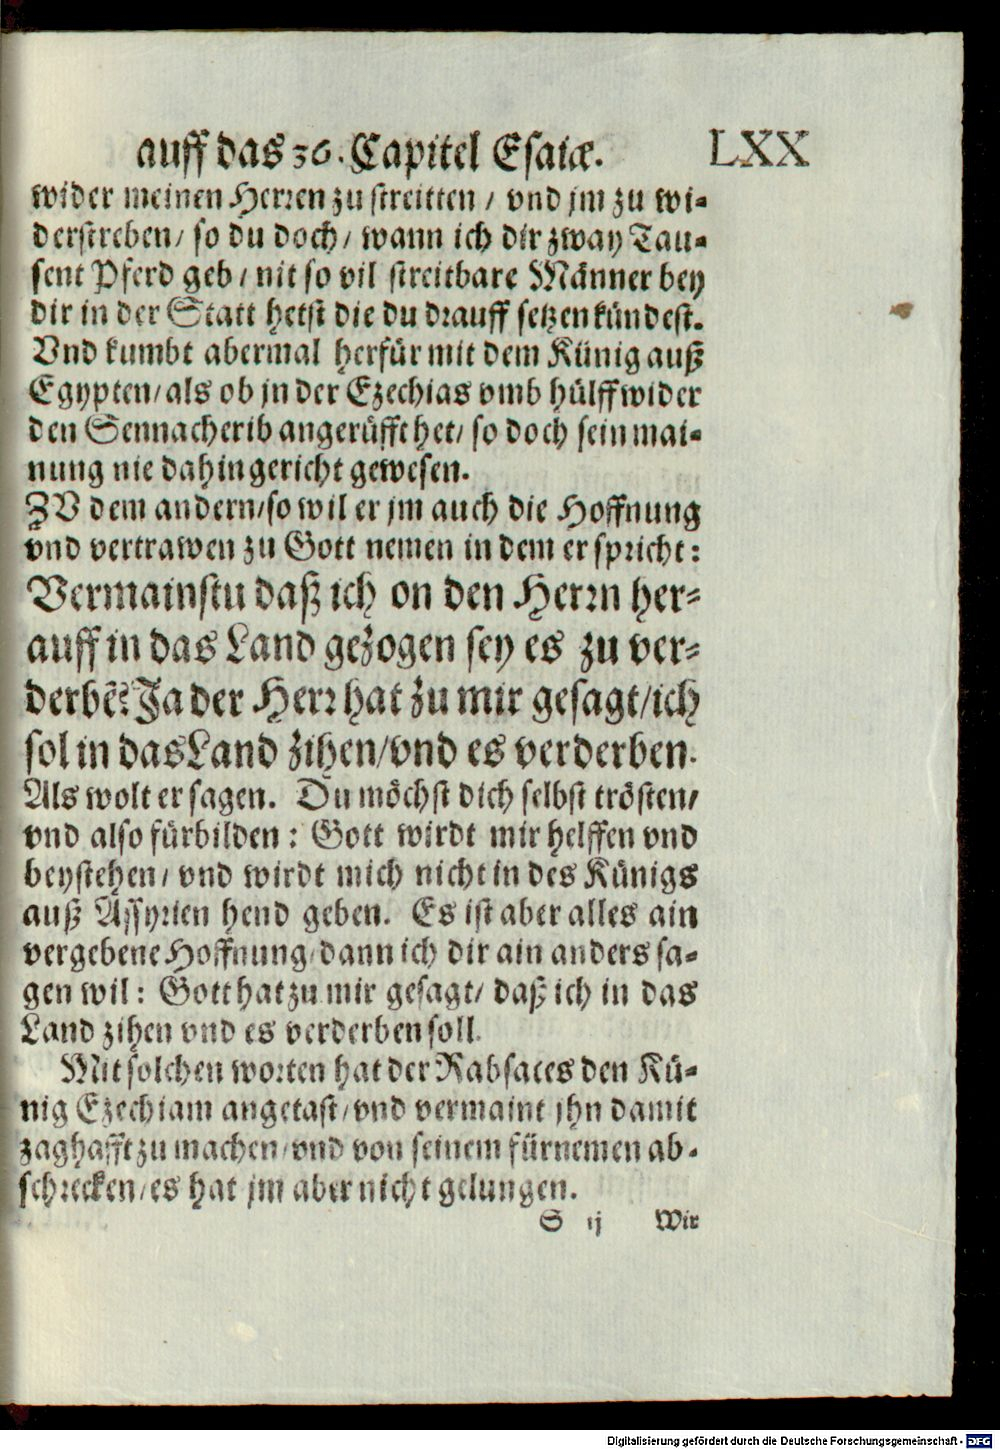 auff das 36. Capitel Esaiæ. LXX
wider meinen Herren zu streitten / vnd jm zu wi-
derstreben / so du doch / wann ich dir zway Tau-
sent Pferd geb / nit so vil streitbare Männer bey
dir in der Statt hetst die du drauff setzen kündest.
Vnd kumbt abermal herfür mit dem Künig auß
Egypten / als ob jn der Ezechias vmb hülff wider
den Sennacherib angerüfft het / so doch sein mai-
nung nie dahin gericht gewesen.
ZV dem andern / so wil er jm auch die Hoffnung
vnd vertrawen zu Gott nemen in dem er spricht:
Vermainstu daß ich on den Herrn her-
auff in das Land gezogen sey es zu ver-
derbẽ? Ja der Herr hat zu mir gesagt / ich
sol in das Land zihen / vnd es verderben.
Als wolt er sagen. Du möchst dich selbst trösten /
vnd also fürbilden: Gott wirdt mir helffen vnd
beystehen / vnd wirdt mich nicht in des Künigs
auß Assyrien hend geben. Es ist aber alles ain
vergebene Hoffnung / dann ich dir ain anders sa-
gen wil: Gott hat zu mir gesagt / daß ich in das
Land zihen vnd es verderben soll.
Mit solchen worten hat der Rabsaces den Kü-
nig Ezechiam angetast / vnd vermaint jhn damit
zaghafft zu machen / vnd von seinem fürnemen ab-
schrecken / es hat jm aber nicht gelungen.
S ij Wir
Digitalisierung gefördert durch die Deutsche Forschungsgemeinschaft - DFG